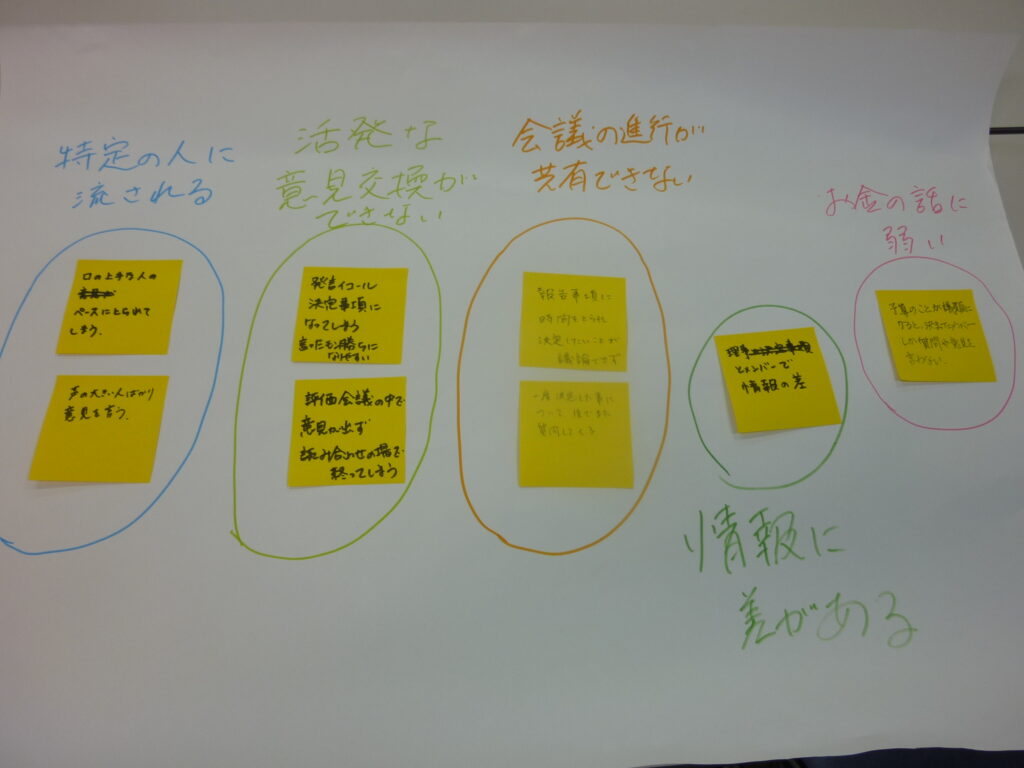 特定の人に
流される
口の上手な人の
ペースにとられて
しまう。
声の大きい人ばかり
意見を言う。
活発な
意見交換が
できない
発言イコール
決定事項に
なってしまう
言ったもの勝ちに
なりやすい
評価会議の中で
意見が出ず
読み合わせの場で
終ってしまう
会議の進行が
共有できない
報告事項に
時間をとられ
決定したいことが
議論できず
一度決定した事に
ついて後でまた
質問してくる
理事
とメンバーで
情報の差
情報に
差がある
お金の話に
弱い
予算のことが議題に
なると、決まったメンバー
しか質問や意見を
言わない。